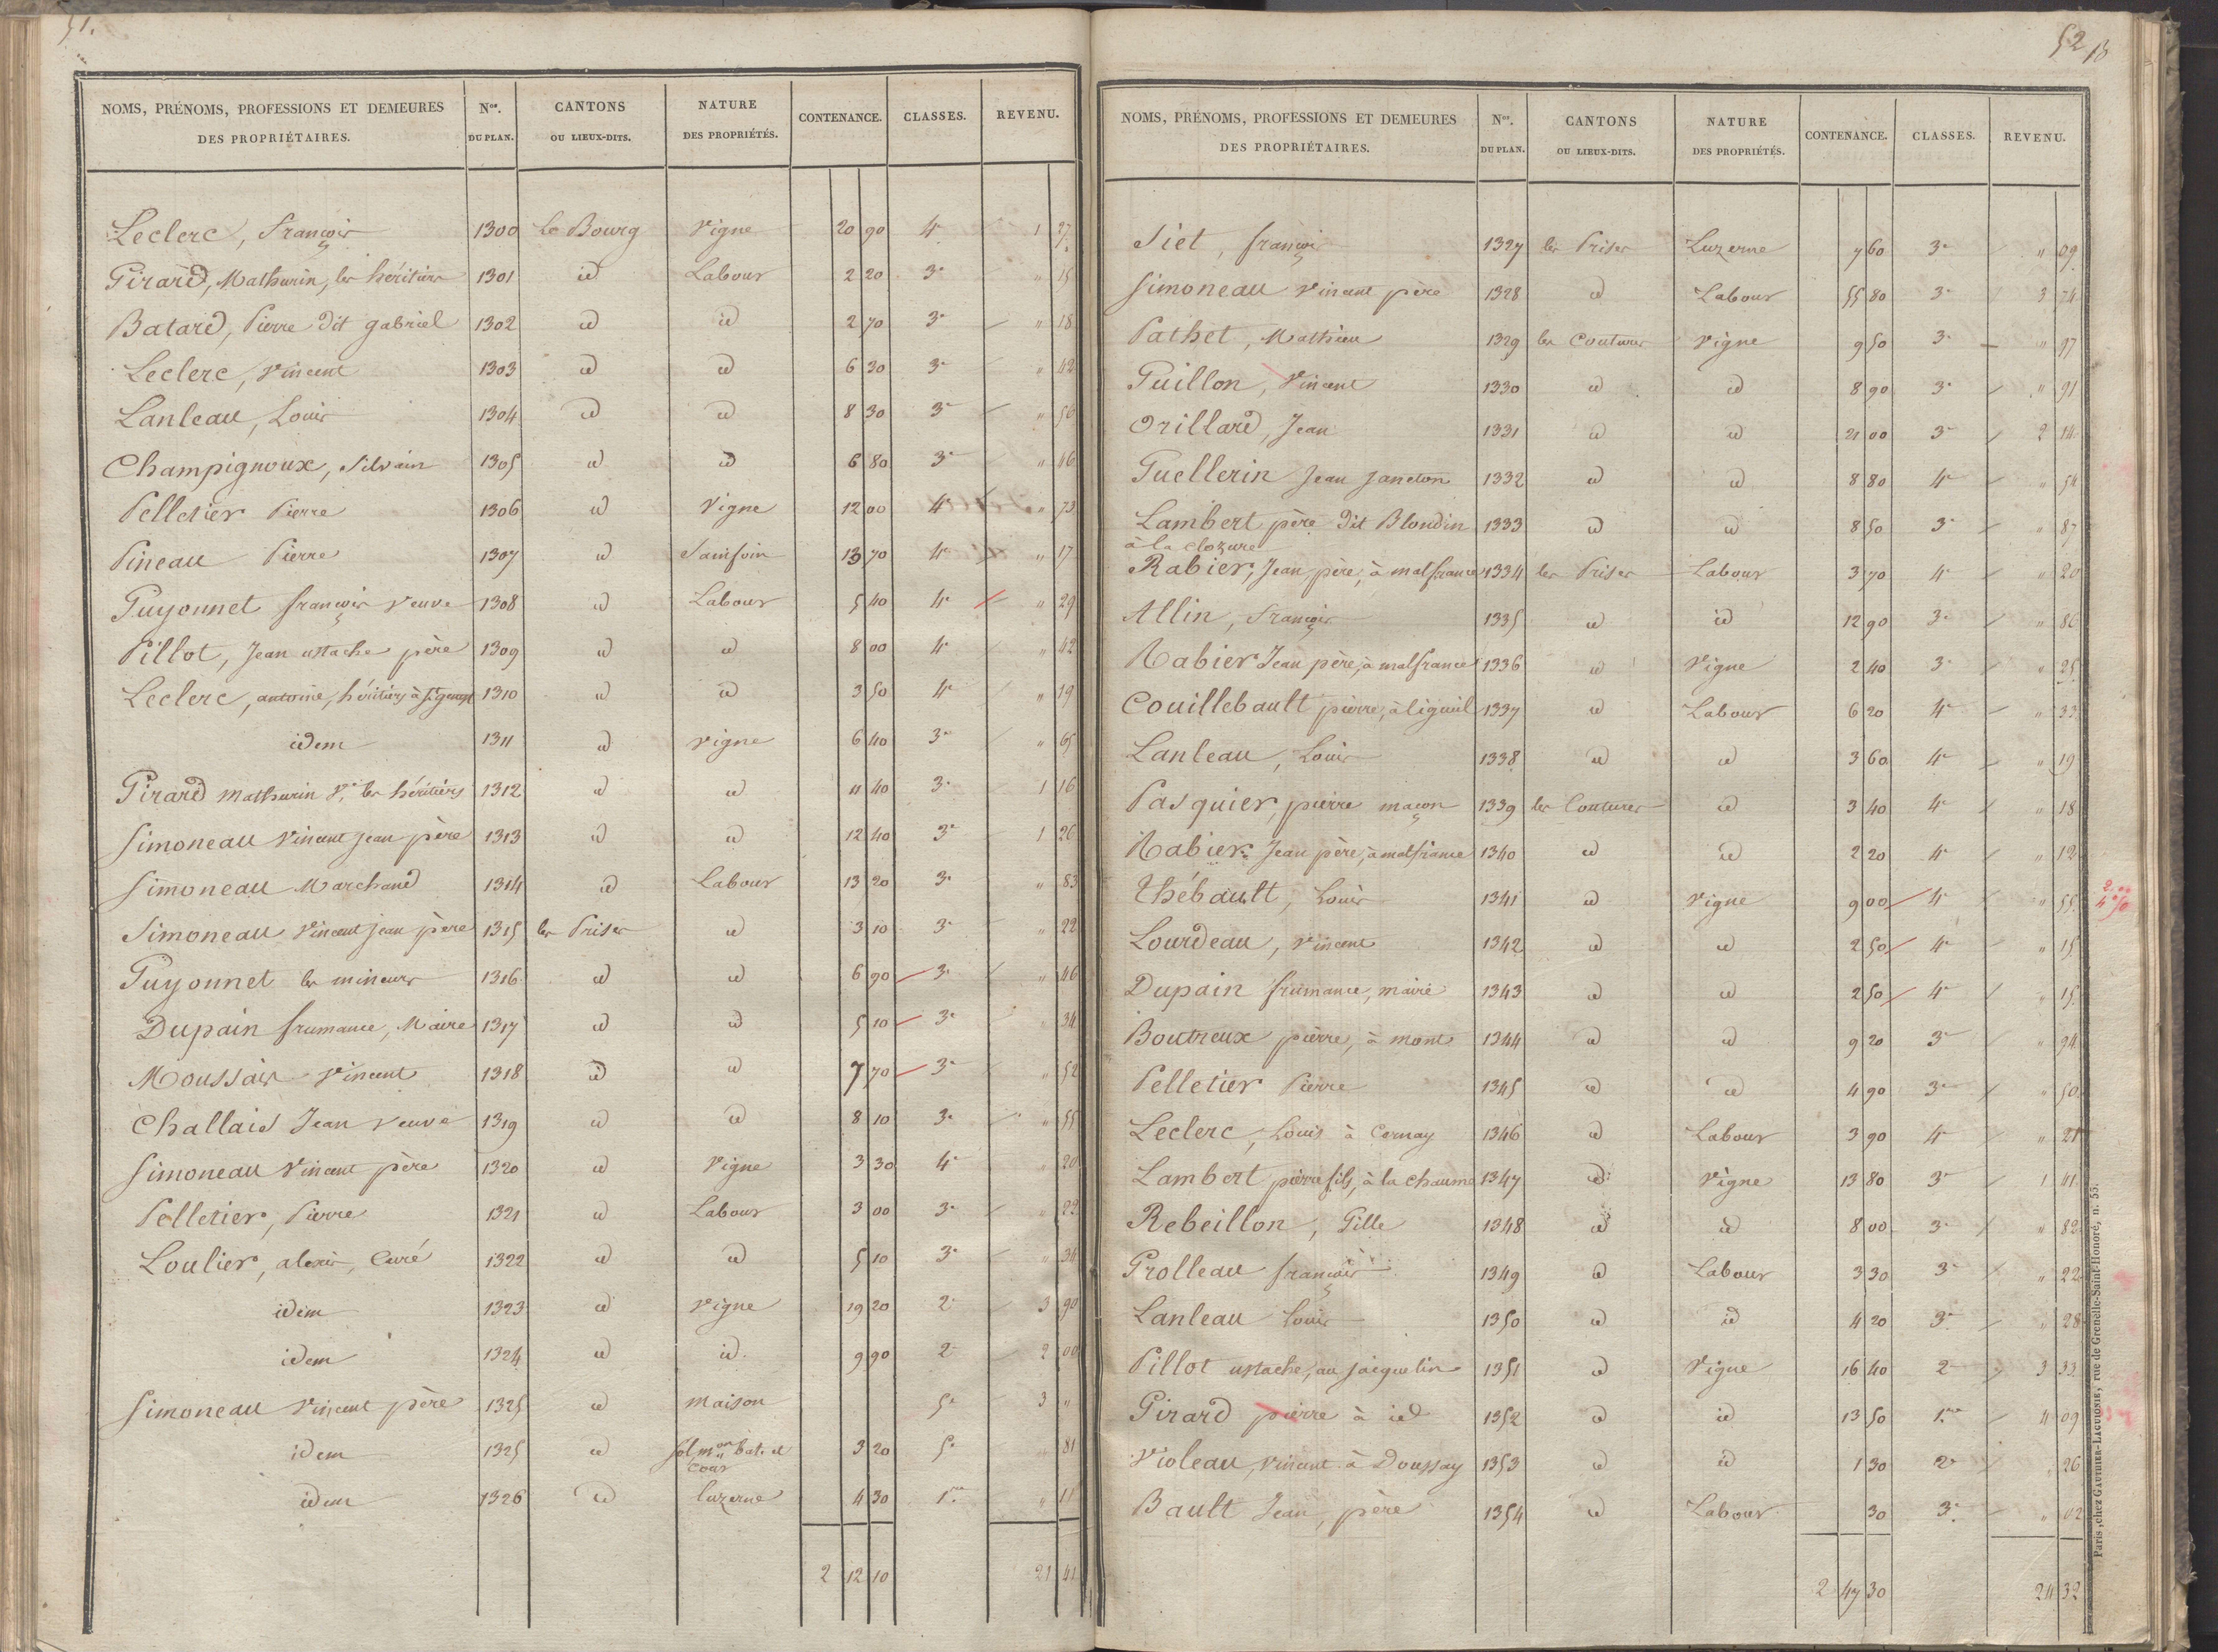 51.
NOMS, PRÉNOMS, PROFESSIONS ET DEMEURES DES PROPRIÉTAIRES. Nos. DU PLAN. CANTONS OU LIEUX-DITS. NATURE DES PROPRIÉTÉS. CONTENANCE. CLASSES. REVENU.
Leclerc, françois 1300 le Bourg Vigne 20 90 4e 1 27
Girard, Mathurin, les héritiers 1301 id Labour 2 20 3e " 15
Batard, Pierre dit gabriel 1302 id id 2 70 3e " 18
Leclerc, Vincent 1303 id id 6 30 3e " 42
Lanleau, Louis 1304 id id 8 30 3e " 56
Champignoux, Silvain 1305 id id 6 80 3e " 46
Pelletier Pierre 1306 id Vigne 12 00 4e " 73
Pineau Pierre 1307 id Sainfoin 13 70 4e " 17
Guyonnet françois veuve 1308 id Labour 5 40 4e " 29
Pillot, Jean ustache père 1309 id id 8 00 4e " 42
Leclerc, antoine, héritiers à St genest 1310 id id 3 50 4e " 19
idem 1311 id vigne 6 40 3e " 65
Girard mathurin Ve les héritiers 1312 id id 11 40 3e 1 16
Simoneau Vincent Jean père 1313 id id 12 40 3e 1 26
Simoneau Marchand 1314 id Labour 13 20 3e " 83
Simoneau Vincent jean père 1315 les Prises id 3 10 3e " 22
Guyonnet les mineurs 1316 id id 6 90 3e " 46
Dupain frumance, Maire 1317 id id 5 10 3e " 34
Moussais Vincent 1318 id id 7 70 3e " 52
Challais Jean veuve 1319 id id 8 10 3e " 55
Simoneau Vincent père 1320 id Vigne 3 30 4e " 20
Pelletier, Pierre 1321 id Labour 3 00 3e " 22
Loulier, alexis, Curé 1322 id id 5 10 3e " 34
idem 1323 id vigne 19 20 2e 3 90
idem 1324 id id. 9 90 2e 2 00
Simoneau Vincent père 1325 id maison 5e 3 "
idem 1325 id sol mon bat. et cour 3 20 5e " 81
idem 1326 id luzerne 4 30 1re " 11
2 12 10 21 41
52
18
NOMS, PRÉNOMS, PROFESSIONS ET DEMEURES DES PROPRIÉTAIRES. Nos. DU PLAN. CANTONS OU LIEUX-DITS. NATURE DES PROPRIÉTÉS. CONTENANCE. CLASSES. REVENU.
Siet, françois 1327 les Prises Luzerne 7 60 3e " 09
Simoneau Vincent père 1328 id Labour 55 80 3e 3 74
Pathet, Mathieu 1329 les Coutures Vigne 9 50 3e " 97
Guillon, Vincent 1330 id id 8 90 3e " 91
Orillard, Jean 1331 id id 21 00 3e 2 14
Guellerin Jean Janeton 1332 id id 8 80 4e " 54
Lambert père dit Blondin à la clozure 1333 id id 8 50 3e " 87
Rabier, Jean père, à malfrance 1334 les Prises Labour 3 70 4e " 20
Allin, françois 1335 id id 12 90 3e " 86
Rabier Jean père, à malfrance 1336 id Vigne 2 40 3e " 25
Couillebault pierre, à ligueil 1337 id Labour 6 20 4e " 33
Lanleau, Louis 1338 id id 3 60 4e " 19
Pasquier, pierre maçon 1339 les Coutures id 3 40 4e " 18
Rabier Jean père, à malfrance 1340 id id 2 20 4e " 12
Thébault, Louis 1341 id Vigne 9 00 4e " 55
Lourdeau, Vincent 1342 id id 2 50 4e " 15
Dupain frumance, maire 1343 id id 2 50 4e " 15
Boutreux pierre, à mont 1344 id id 9 20 3e " 94
Pelletier Pierre 1345 id id 4 90 3e " 50
Leclerc, Louis à Cernay 1346 id Labour 3 90 4e " 21
Lambert pierre fils, à la chaume 1347 id Vigne 13 80 3e 1 41
Rebeillon, Gille 1348 id id 8 00 3e " 82
Grolleau françois 1349 id Labour 3 30 3e " 22
Lanleau louis 1350 id id 4 20 3e " 28
Pillot ustache, au jacquelin 1351 id Vigne 16 40 2e 3 33
Girard pierre à id 1352 id id 13 50 1re 4 09
Violeau, vincent à Doussay 1353 id id 1 30 2e " 26
Bault Jean, père 1354 id Labour 30 3e " 02
2 47 30 24 32
Paris, chez GAUTHIER-LAGUIONIE, rue de Grenelle-Saint-Honoré, n. 55.